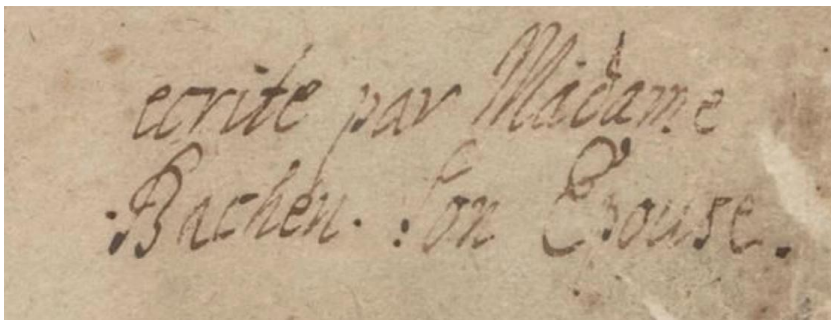 ecrite par Madame
Bachen. Son Epouse.